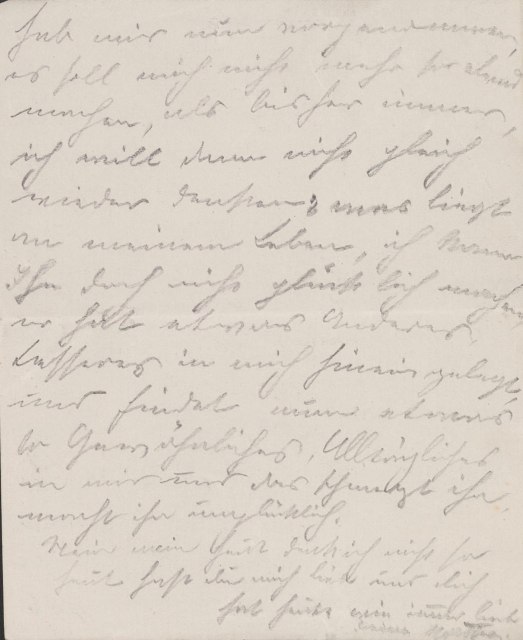 hab mir nun vorgenommen,
es soll mich nicht mehr so elend
machen, als bisher immer,
ich will dann nicht gleich
wieder denken: was liegt
an meinem Leben, ich kann
Ihn doch nicht glücklich machen
er hat etwas Anderes
Besseres in mich hineingelegt,
und findet nun etwas
so Gewöhnliches, Alltägliches
in mir und das schmerzt ihn
macht ihn unglücklich.
Nein nein heut denk ich nicht so
heut hast du mich lieb und dich
hat heute wie immer lieb